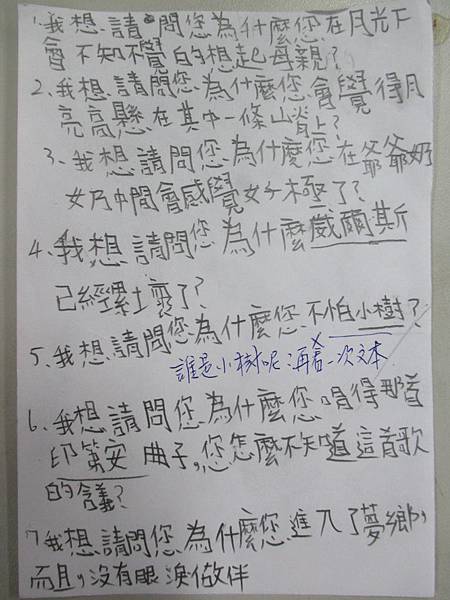 1.我想請問您為什麼您在月光下
會不知不覺的想起母親?
2.我想請問您為什麼您會覺得月
亮高懸在其中一條山背上?
3.我想請問您為什麼您在爺爺奶
奶中間會感覺好極了?
4.我想請問您為什麼葳爾斯
已經累壞了?
5.我想請問您為什麼您不怕小樹?
誰是小樹呢?再看一次文本
6.我想請問您為什麼您唱得那首
印第安曲子,您怎麼不知道這首歌
的含義?
7我想請問您為什麼您進入了夢鄉,
而且,沒有眼淚做伴